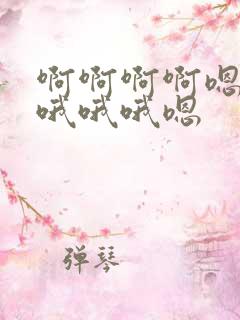 啊啊啊啊嗯
哦哦哦嗯
弹琴